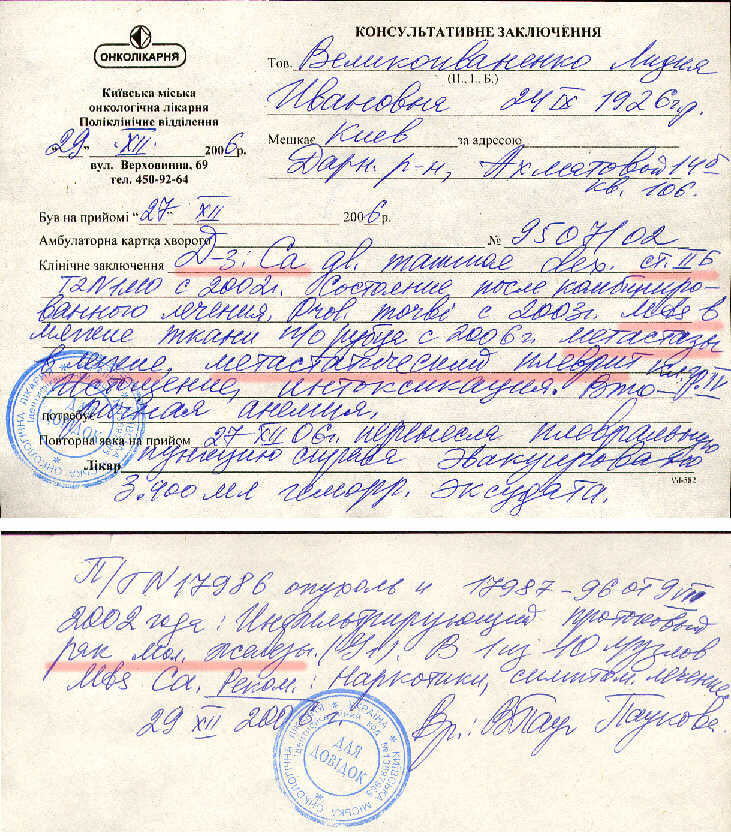 ОНКОЛІКАРНЯ
Київська міська
онкологічна лікарня
Поліклінічне відділення
"29" XII 2006 р.
вул. Верховинна, 69
тел. 450-92-64
КОНСУЛЬТАТИВНЕ ЗАКЛЮЧЕННЯ
Тов. Великоиваненко Лидия
(П., І., Б.)
Ивановна 24 IX 1926 гр.
Мешкає Киев за адресою
Дарн. р-н, Ахматовой 14б
кв. 106.
Був на прийомі "27" XII 2006 р.
Амбулаторна картка хворого № 9507/02
Клінічне заключення Д-з: Ca ст. II Б
T2N1M0 с 2002г. Состояние после комбиниро-
ванного лечения. с 2003г. Mts в
мягкие ткани п/о рубца с 2006г. метастазы
в легкие, метастатический плеврит кл. гр. IV
Истощение, интоксикация. Вто-
потребує ричная анемия.
Повторна явка на прийом 27 XII 06г. перенесла плевральную
Лікар пункцию справа Эвакуировано
3.400 мл геморр. экссудата.
П/Г N 17986 опухоль и 17987-96 от 9 VIII
2002 года: Инфильтрирующий протоковый
рак мол. железы. В 1 из 10 л/узлов
Mts Ca. Реком.: Наркотики, симптом. лечение
29 XII 2006 г. Вр.: Паукова.
УКРАЇНА * КИЇВСЬКА МІСЬКА ОНКОЛОГІЧНА ЛІКАРНЯ
ДЛЯ
ДОВІДОК